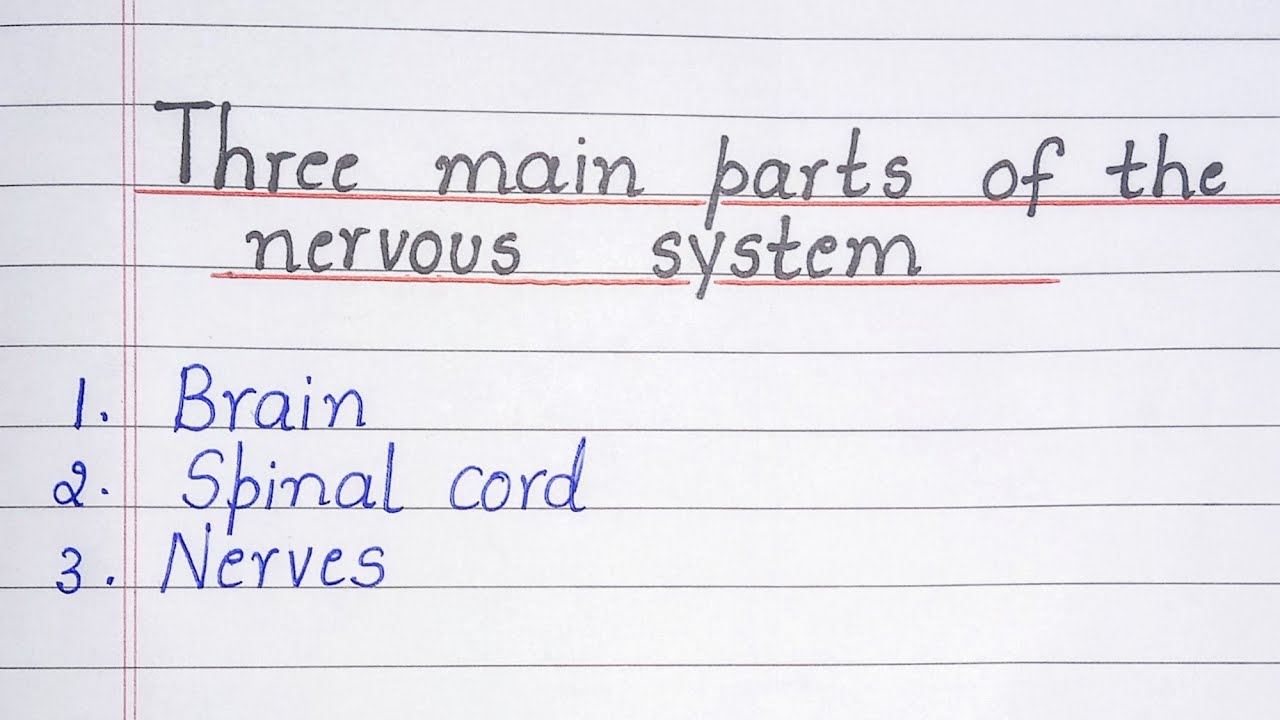 Three main parts of the
nervous system
1. Brain
2. Spinal cord
3. Nerves